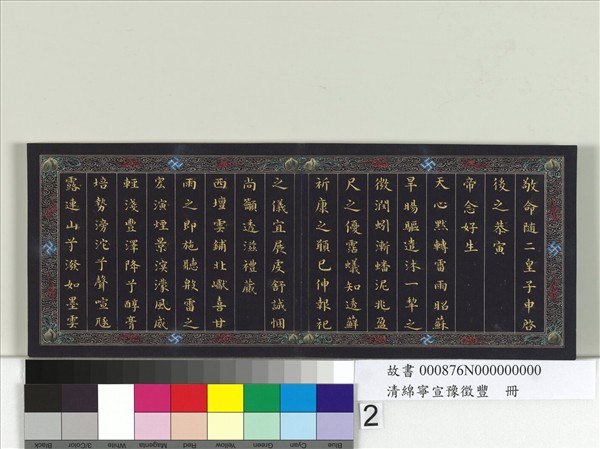 敬命随二皇子申啓
後之恭寅
帝念好生
天心默轉雷雨昭蘇
旱暘驅遣沐一犂之
微潤蚓漸蟠泥兆盈
尺之優霑蟻知透蘚
祈康之願已伸報祀
之儀宜展虔舒誠悃
尚籲透滋禮蕆
西壇雲鋪北巘喜甘
雨之即施聽殷雷之
宏演煙景溟濛風威
輕淺豐澤降兮醇膏
培勢滂沱兮聲喧豗
連山兮潑如墨雲
故書 000876N000000000
清綿寧宣豫徵豐 冊
2
Black
3/Color
White
Magenta
Red
Yellow
Green
Cyan
Blue